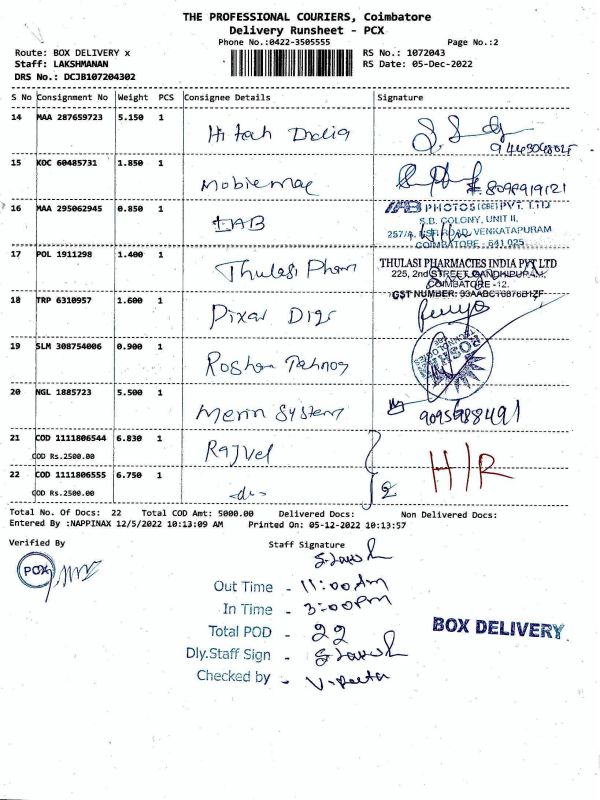 THE PROFESSIONAL COURIERS, Coimbatore
Delivery Runsheet - PCX
Phone No.:0422-3505555 Page No.:2
Route: BOX DELIVERY x RS No.: 1072043
Staff: LAKSHMANAN RS Date: 05-Dec-2022
DRS No.: DCJB107204302
S No Consignment No Weight PCS Consignee Details Signature
14 MAA 287659723 5.150 1
Hi tech India
15 KOC 60485731 1.850 1
Mobiemac 8098919121
16 MAA 295062945 0.850 1 IAB PHOTOS (CBE) PVT. LTD
IAB S.B. COLONY, UNIT II,
ROAD, VENKATAPURAM
COIMBATORE - 641 025
17 POL 1911298 1.400 1 THULASI PHARMACIES INDIA PVT LTD
Thulasi Pharm 225, 2nd STREET, GANDHIPURAM,
COIMBATORE -12.
18 TRP 6310957 1.600 1 GST NUMBER:
Pixar Digi
19 SLM 308754006 0.900 1
Roshan
20 NGL 1885723 5.500 1
Merin System 9095988491
21 COD 1111806544 6.830 1 Rajvel
COD Rs.2500.00 H/R
22 COD 1111806555 6.750 1
COD Rs.2500.00 -do- 2
Total No. Of Docs: 22 Total COD Amt: 5000.00 Delivered Docs: Non Delivered Docs:
Entered By :NAPPINAX 12/5/2022 10:13:09 AM Printed On: 05-12-2022 10:13:57
Verified By Staff Signature
PCX
Out Time - 11:00 Am
In Time - 3:00 PM
Total POD - 22
BOX DELIVERY
Dly.Staff Sign -
Checked by -